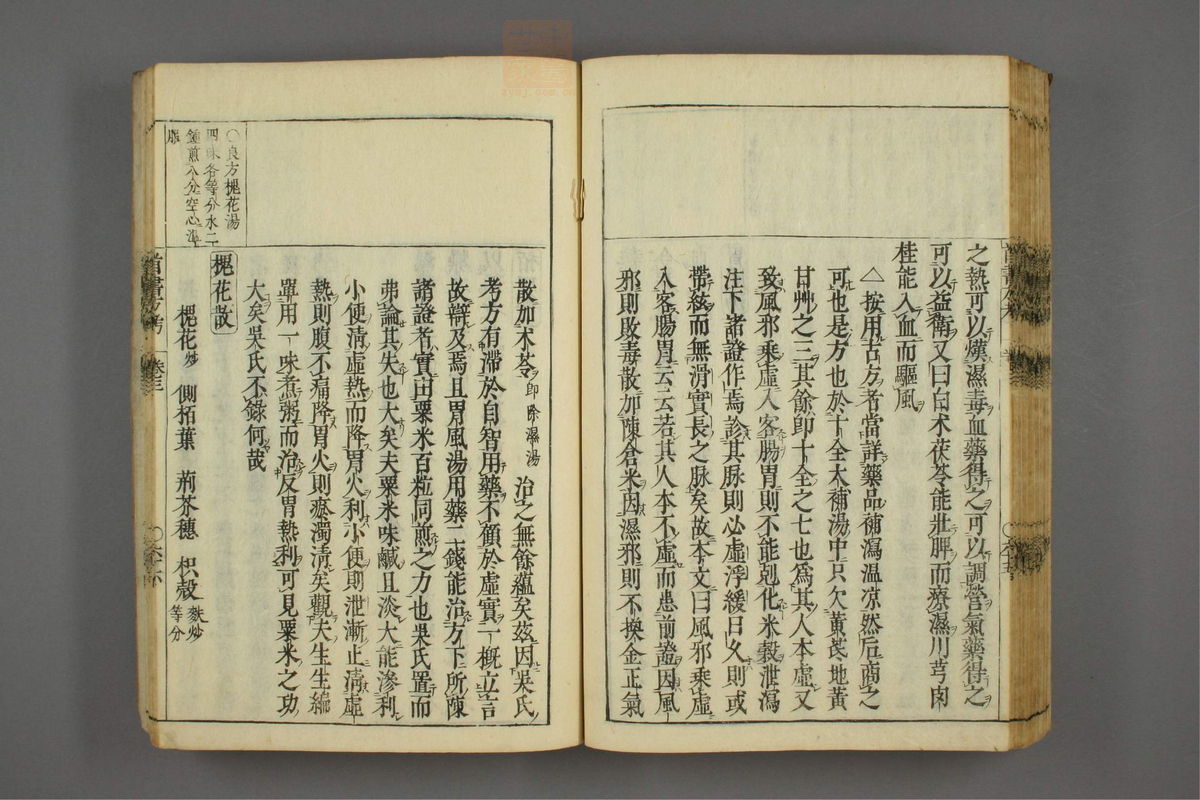 之熱可以燥濕毒血藥得之可以調營氣藥得之
可以益衛又曰白术茯苓能壯脾而療濕川芎肉
桂能入血而驅風
△按用古方者當詳藥品補瀉温凉然后商之
可也是方也於十全大補湯中只欠黃芪地黃
甘艸之三其餘卽十全之七也爲其人本虛又
致風邪乘虛入客腸胃則不能剋化米穀泄瀉
注下諸證作焉診其脉則必虛浮緩日久則或
帶絃而無滑實長之脉矣故本文曰風邪乘虛
入客腸胃云云若其人本不虛而患前證因風
邪則敗毒散加陳倉米因濕邪則不換金正氣
散加术苓卽除濕湯治之無餘蘊矣茲因吳氏
考方有滯於自智用藥不顧於虛實一概立言
故辯及焉且胃風湯用藥二錢能治方下所陳
諸證者實由粟米百粒同煎之力也吳氏置而
弗論其失也大矣夫粟米味鹹且淡大能滲利
小便淸虛熱而降胃火利小便則泄漸止淸虛
熱則腹不痛降胃火則瘀濁淸矣觀夫生生編
單用一味煮粥而治反胃熱利可見粟米之功
大矣吳氏不錄何哉
槐花散
槐花炒 側栢葉 荊芥穗 枳殼麩炒等分
〇良方槐花湯
四味各等分水二
鍾煎八分空心溫
服
卷三
〇六十六